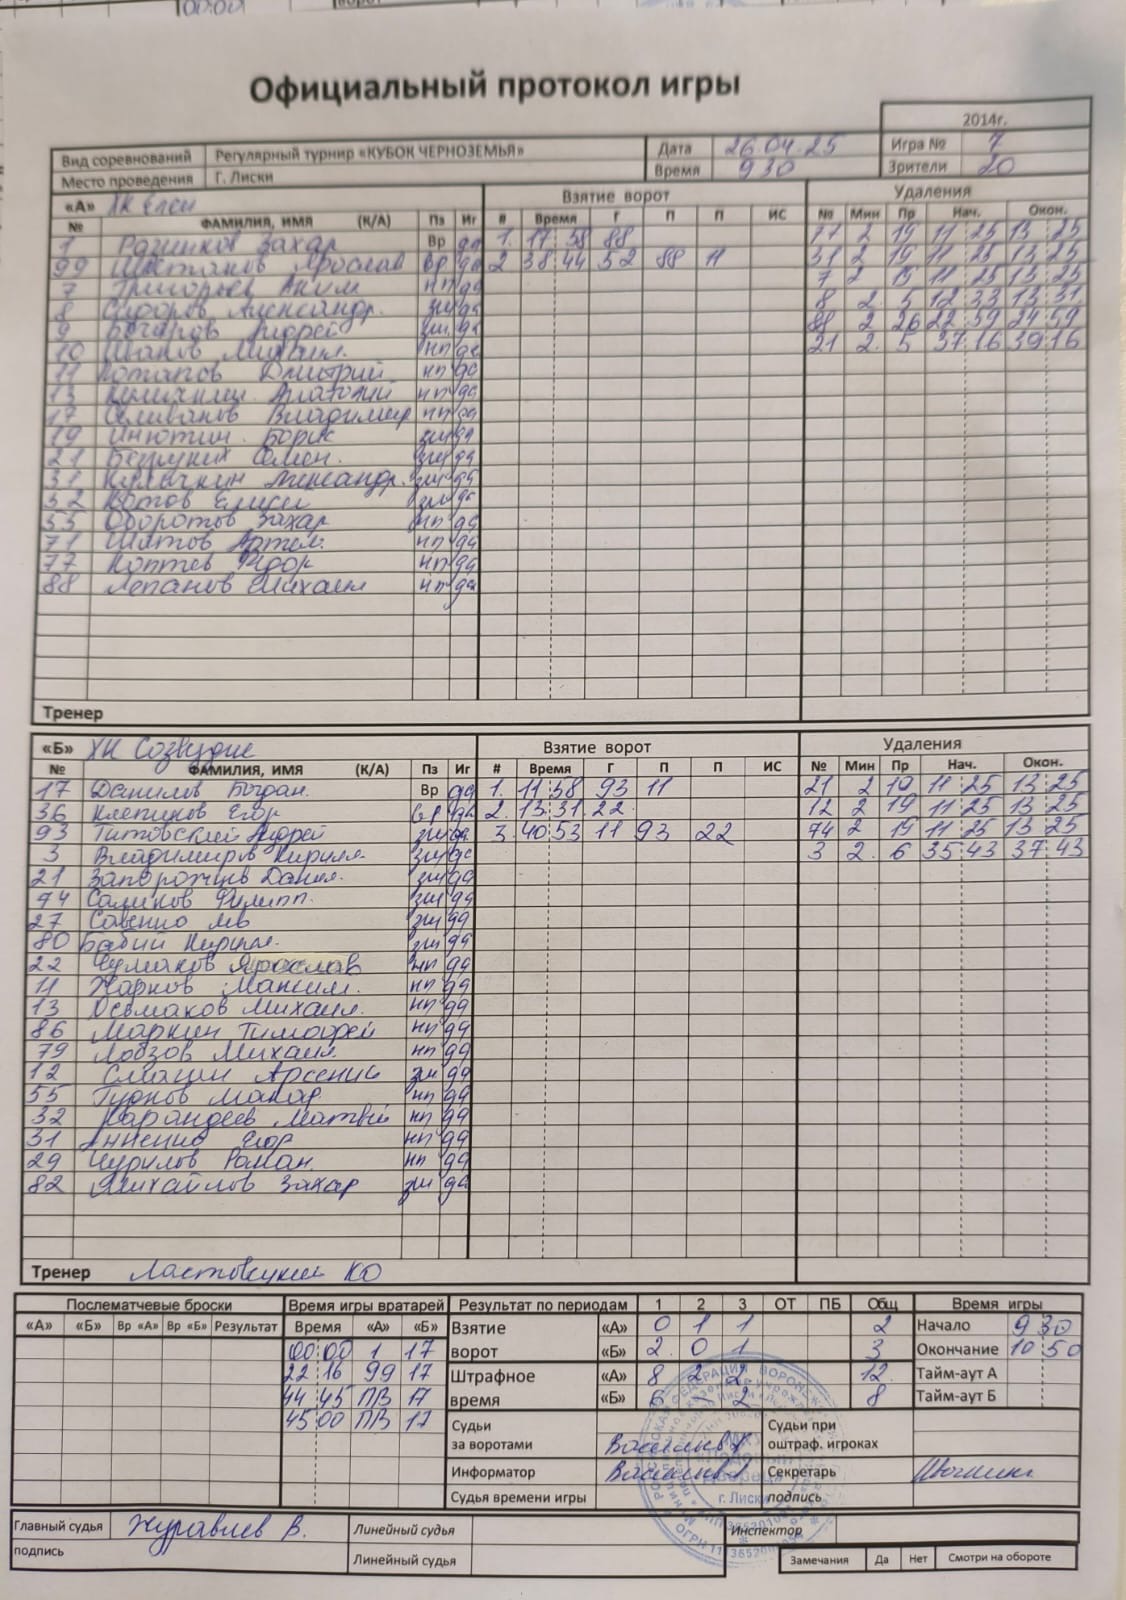 Официальный протокол игры
2014г.
Вид соревнований Регулярный турнир «КУБОК ЧЕРНОЗЕМЬЯ» Дата 26.04.25 Игра № 7
Место проведения Г. Лиски Время 9 30 Зрители 20
«А» ХК Взятие ворот Удаления
№ ФАМИЛИЯ, ИМЯ (К/А) Пз Иг # Время Г П П ИС № Мин Пр Нач. Окон.
1 Захар Вр да 1. 17 58 88 11 2 19 11 25 13 25
99 Ярослав Вр да 2 38 44 52 88 11 31 2 19 11 25 13 25
7 Григорьев Аким нп да 7 2 19 11 25 13 25
8 Сидоров Александр. зщ да 8 2. 5 12 33 13 31
9 Бочаров Андрей зщ. да 88 2 26 22 59 24 59
10 Иванов Михаил. нп да 21 2. 5 37 16 39 16
11 Потапов Дмитрий нп да
13 Анатолий нп да
17 Селиванов Владимир нп да
19 Инютин Борис зщ да
21 Безруких Семен. зщ да
31 Куличкин Александр. зщ да
52 Котов Елисей зщ да
55 Оборотов Захар нп да
71 Шатов Артем. нп да
77 Коптев Фёдор нп да
88 Лепанов Михаил нп да
Тренер
«Б» ХК Созвездие Взятие ворот Удаления
№ ФАМИЛИЯ, ИМЯ (К/А) Пз Иг # Время Г П П ИС № Мин Пр Нач. Окон.
17 Данилов Богдан. Вр да 1. 11 58 93 11 21 2 19 11 25 13 25
36 Клепиков Егор Вр да 2. 13 31 22 12 2 19 11 25 13 25
93 Титовский Андрей зщ да 3 40 53 11 93 22 74 2 19 11 25 13 25
3 Владимиров Кирилл. зщ да 3 2. 6 35 43 37 43
21 Запорожцев Данил. зщ да
74 Саликов Филипп. зщ да
27 Савенко Лев зщ да
80 Бабий Кирилл. зщ да
22 Чумаков Ярослав нп да
11 Жарков Максим. нп да
13 Михаил. нп да
86 Маркин Тимофей нп да
79 Лобзов Михаил нп да
12 Арсений зщ да
55 Гудков Макар нп да
32 Карандеев Матвей нп да
31 Анненко Егор нп да
29 Чурилов Роман. нп да
82 Михайлов Захар зщ да
Тренер КО
Послематчевые броски Время игры вратарей Результат по периодам 1 2 3 ОТ ПБ Общ Время игры
«А» «Б» Вр «А» Вр «Б» Результат Время «А» «Б» Взятие «А» 0 1 1 2 Начало 9 30
00 00 1 17 ворот «Б» 2. 0 1 3 Окончание 10 50
22 16 99 17 Штрафное «А» 8 2 2 12. Тайм-аут А
44 45 ПВ 17 время «Б» 6 - 2 8 Тайм-аут Б
45 00 ПВ 17 Судьи Судьи при
за воротами оштраф. игроках
Информатор Секретарь
Судья времени игры подпись
г. Лиски
Главный судья Журавлев В. Линейный судья Инспектор
подпись Линейный судья Замечания Да Нет Смотри на обороте